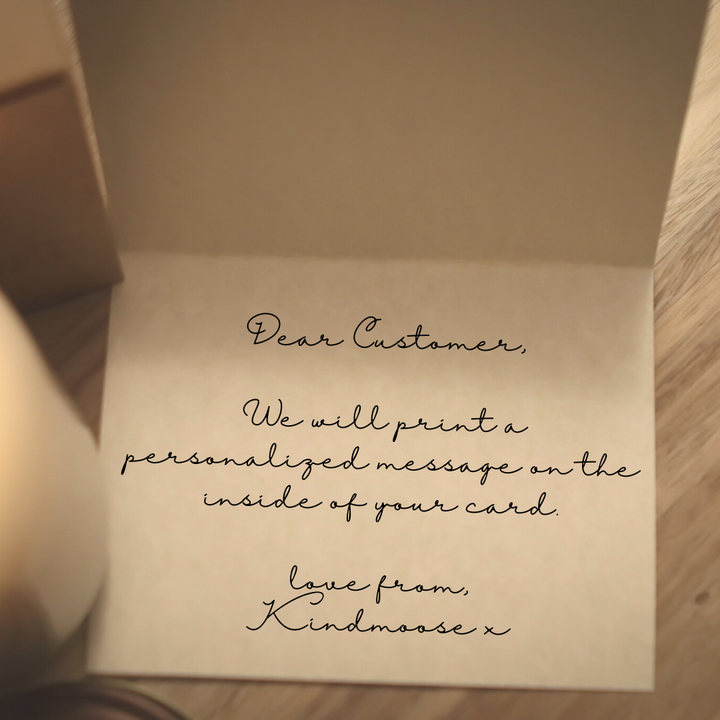 Dear Customer,
We will print a
personalized message on the
inside of your card.
love from,
Kindmoose x